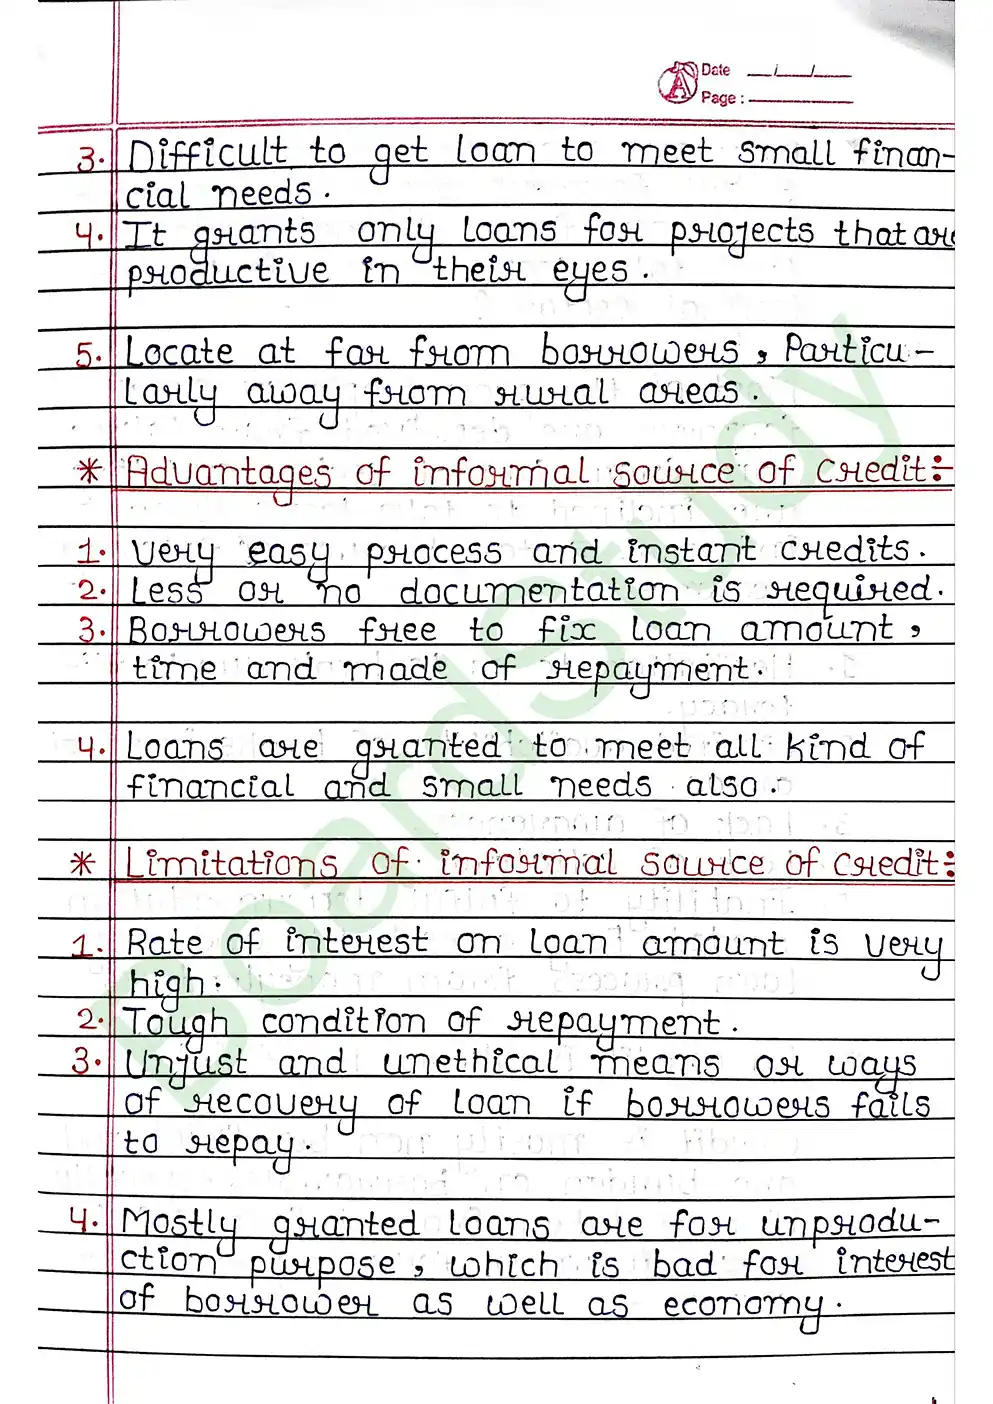 Date __/__/__
Page :
3. Difficult to get loan to meet small finan-
cial needs.
4. It grants only loans for projects that are
productive in their eyes.
5. Locate at far from borrowers, Particu-
larly away from rural areas.
* Advantages of informal source of credit:-
1. Very easy process and instant credits.
2. Less or no documentation is required.
3. Borrowers free to fix loan amount,
time and made of repayment.
4. Loans are granted to meet all kind of
financial and small needs also.
* Limitations of informal source of credit:
1. Rate of interest on loan amount is very
high.
2. Tough condition of repayment.
3. Unjust and unethical means or ways
of recovery of loan if borrowers fails
to repay.
4. Mostly granted loans are for unprodu-
ction purpose, which is bad for interest
of borrower as well as economy.
BoardStudy